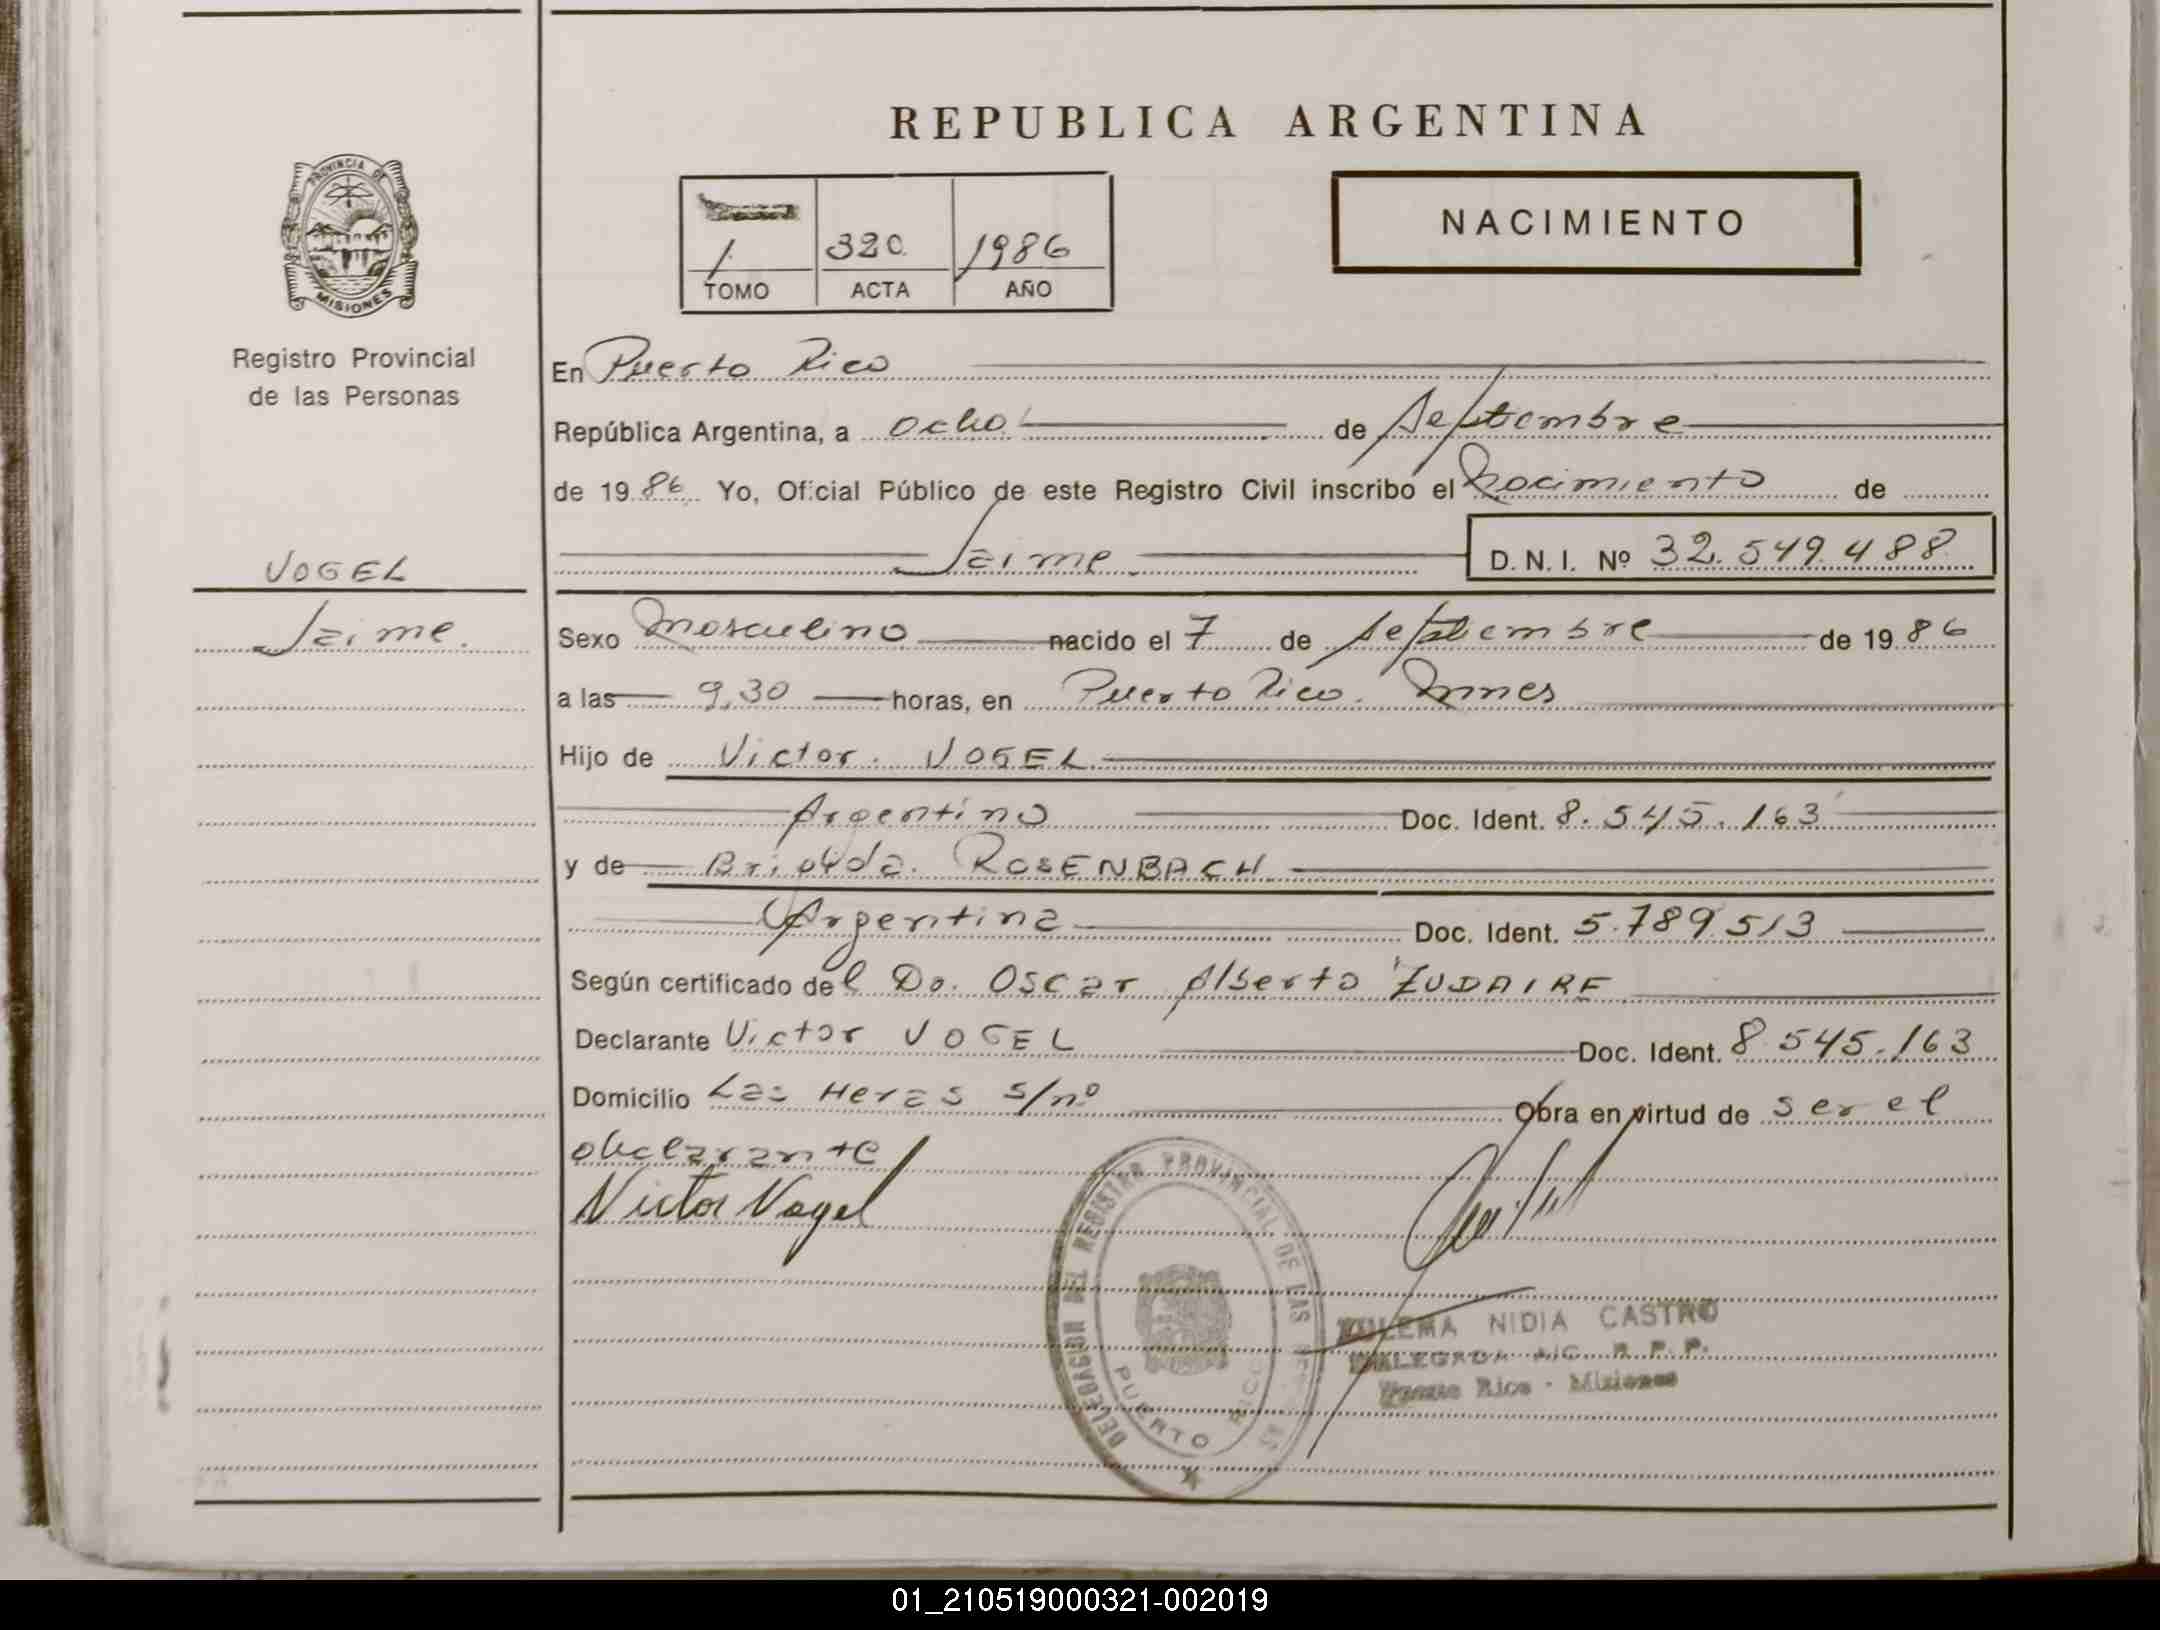 REPUBLICA ARGENTINA
PROVINCIA DE MISIONES
1 320 1986
TOMO ACTA AÑO
NACIMIENTO
Registro Provincial
de las Personas
VOGEL
Jaime.
En Puerto Rico
República Argentina, a ocho de Septiembre
de 1986 Yo, Oficial Público de este Registro Civil inscribo el Nacimiento de
Jaime. D. N. I. Nº 32.549.488
Sexo Masculino nacido el 7 de Septiembre de 1986
a las 9,30 horas, en Puerto Rico. Mnes
Hijo de Victor. VOGEL
Argentino Doc. Ident. 8.545.163
y de ROSENBACH
Argentina Doc. Ident. 5.789.513
Según certificado del Do. Oscar Alberto ZUDAIRE
Declarante Victor VOGEL Doc. Ident. 8.545.163
Domicilio Las Heras s/nº Obra en virtud de ser el
declarante
Victor Vogel
DELEGACION DEL REGISTRO PROVINCIAL DE LAS
PUERTO RICO
NIDIA CASTRO
R. P. P.
Rico - Misiones
01_210519000321-002019